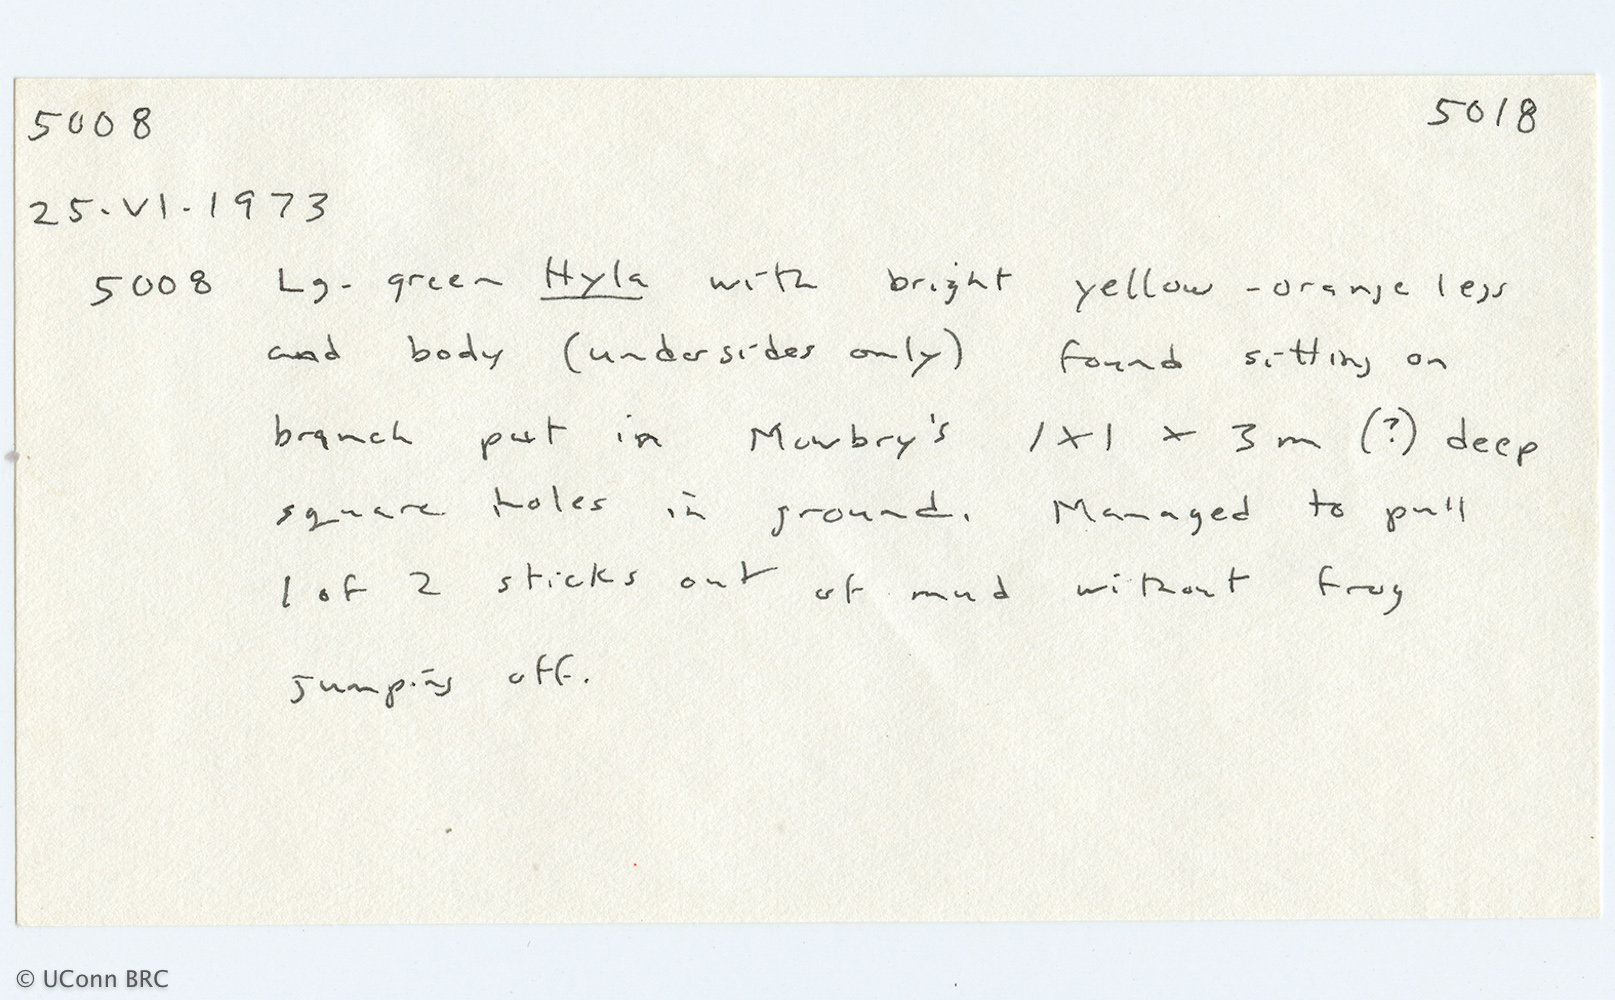 5008 5018
25.VI.1973
5008 Lg. green Hyla with bright yellow-orange legs
and body (undersides only) found sitting on
branch put in Mowbry's 1x1 x 3m (?) deep
square holes in ground. Managed to pull
1 of 2 sticks out of mud without frog
jumping off.
© UConn BRC